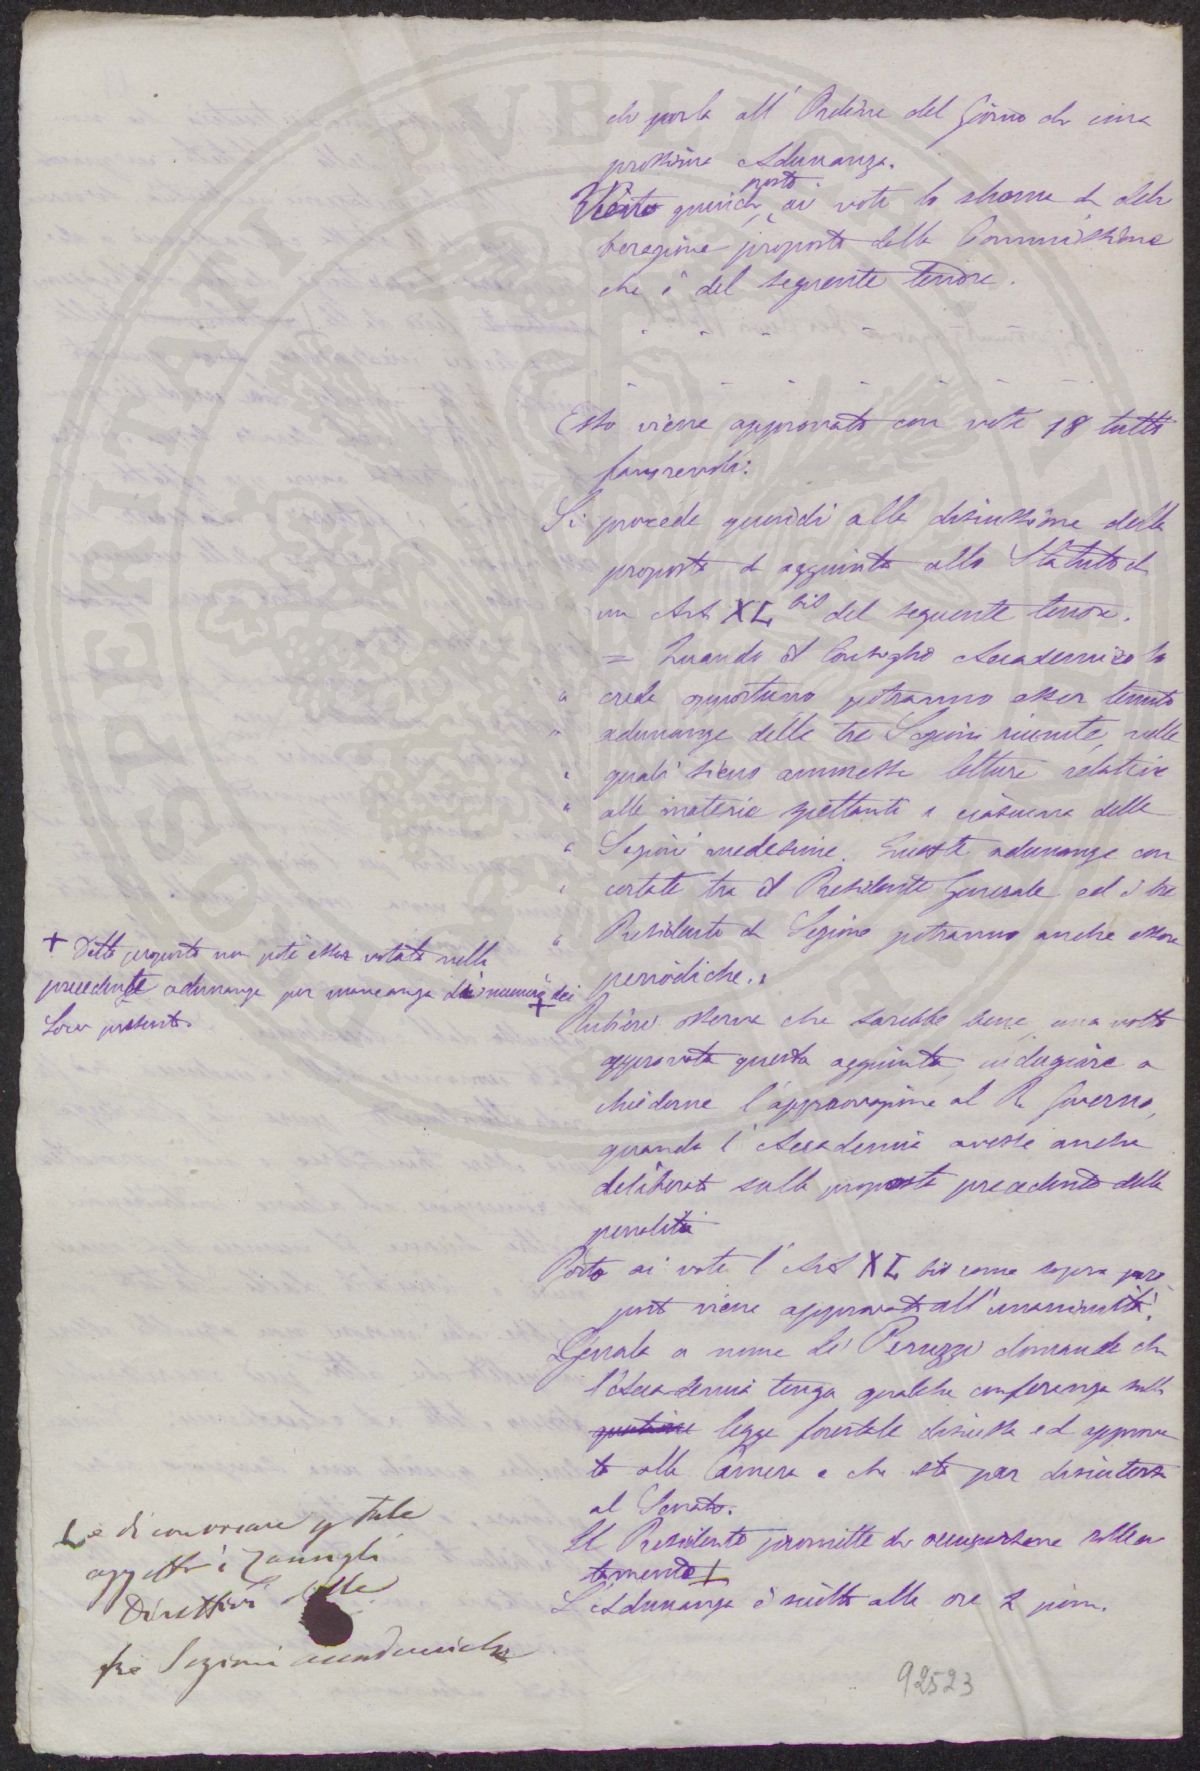 di porla all'Ordine del Giorno di una
prossima Adunanza.
posto
Viene quindi ai voti lo schema di deli
berazione proposto dalla Commissione
che è del seguente tenore.
Esso viene approvato con voti 18 tutti
favorevoli.
Si procede quindi alla discussione della
proposta di aggiunta allo Statuto di
un Art XL bis del seguente tenore.
= Quando il Consiglio Accademico lo
" creda opportuno potranno esser tenute
" adunanze delle tre Sezioni riunite, nelle
" quali sieno ammesse letture relative
" alle materie spettanti a ciascuna delle
" Sezioni medesime. Queste adunanze con
" certate tra il Presidente Generale ed i tre
" Presidenti di Sezione potranno anche essere
periodiche. "
+ Detta proposta non poté esser votata nella
precedente adunanza per mancanza di numero dei
Soci presenti.
+
Rubieri osserva che sarebbe bene, una volta
approvata questa aggiunta, indugiare a
chiederne l'approvazione al R. Governo,
quando l'Accademia avesse anche
deliberato sulla proposta precedente della
penalità
Posto ai voti l'Art XL bis come sopra pro
posto viene approvato all'unanimità.
a nome di Peruzzi domanda che
l'Accademia tenga qualche conferenza sulla
questione legge forestale discussa ed approva
ta alla Camera e che sta per discutersi
al Senato.
Il Presidente promette di occuparsene solleci
tamente +
L'Adunanza è sciolta alle ore 2 pom.
+ e di convocare p. tale
oggetto i Consigli
Direttivi delle
tre Sezioni accademiche
92523